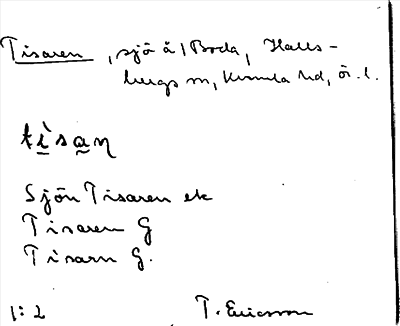 Tisaren, sjö å 1 Boda, Halls-
bergs m, Kumla hd, ör. l.
tìsaɳ
Sjön Tisaren ek
Tisaren G
Tisarn G.
1:2 T. Ericsson